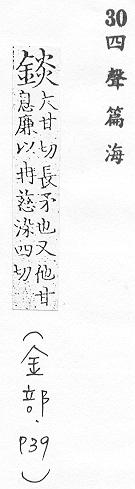 30四聲篇海
錟
六甘切長矛也又他甘
息廉以冉慈染四切
(金部.
P39)